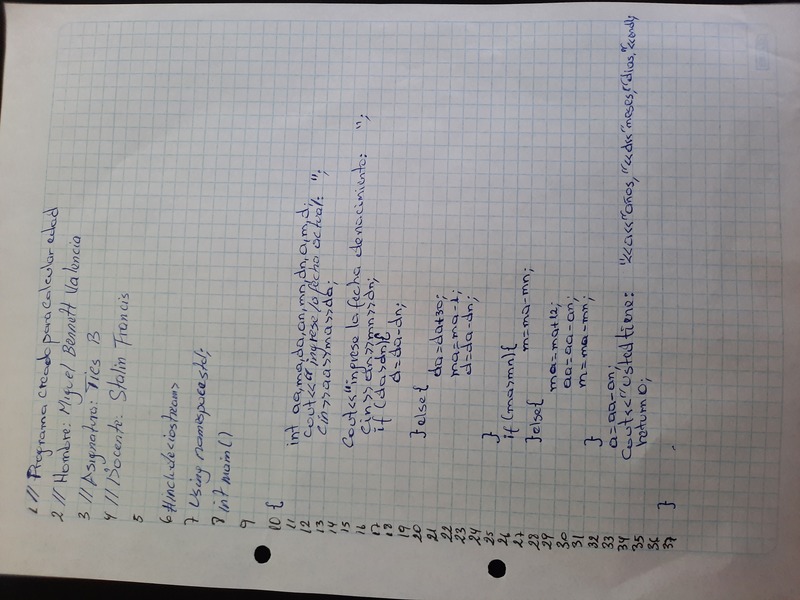 1 // Programa creado para calcular edad
2 // Nombre: Miguel Bennett Valencia
3 // Asignatura: Tics B
4 // Docente: Stalin Francis
5
6 #include<iostream>
7 Using namespace std;
8 int main()
9
10 {
11 int aa,ma,da,an,mn,dn,a,m,d;
12 Cout<<"ingrese la fecha actual: ";
13 Cin>>aa>>ma>>da;
14
15 Cout<<"ingrese la fecha denacimiento: ";
16 Cin>>dn>>mn>>dn;
17 if (da>dn){
18 d=da-dn;
19
20 }else{
21 da=da+30;
22 ma=ma-1;
23 d=da-dn;
24
25 }
26 if (ma>mn){
27 m=ma-mn;
28 }else{
29 ma=ma+12;
30 aa=aa-an;
31 m=ma-mn;
32 }
33 a=aa-an;
34 Cout<<"Usted tiene: "<<a<<"años,"<<d<<"meses,"dias,"<<endl;
35 return 0;
36
37 }